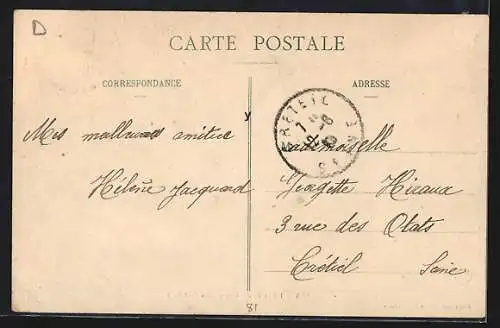 D
CARTE POSTALE
CORRESPONDANCE
ADRESSE
CRETEIL
SEINE
Mes amitiés
Hélène Jacquard
Mademoiselle
Georgette Hiraux
3 rue des
Créteil Seine
81